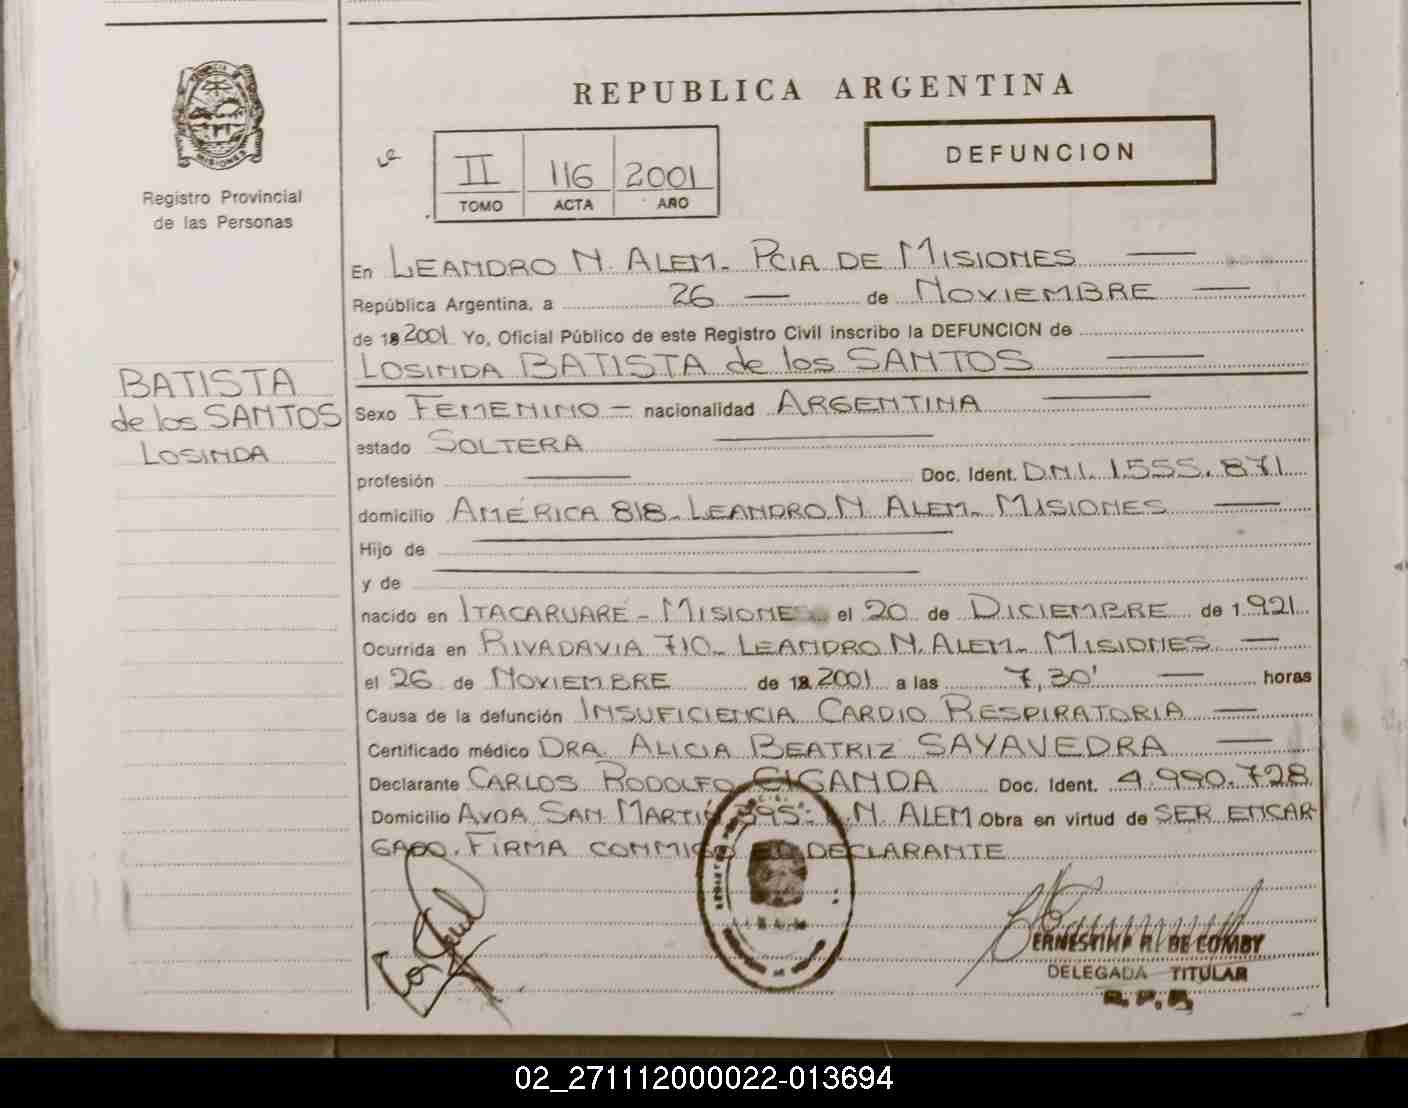 REPUBLICA ARGENTINA
MISIONES
Registro Provincial
de las Personas
II 116 2001
TOMO ACTA AÑO
DEFUNCION
En LEANDRO N. ALEM. PCIA DE MISIONES
República Argentina, a 26 — de NOVIEMBRE —
de 18 2001 Yo, Oficial Público de este Registro Civil inscribo la DEFUNCION de
LOSINDA BATISTA de los SANTOS
BATISTA
de los SANTOS
LOSINDA
Sexo FEMENINO — nacionalidad ARGENTINA
estado SOLTERA
profesión — Doc. Ident. D.N.I. 1.555.871
domicilio AMÉRICA 818. LEANDRO N. ALEM. MISIONES
Hijo de
y de
nacido en ITACARUARÉ - MISIONES el 20 de DICIEMBRE de 1.921
Ocurrida en RIVADAVIA 710. LEANDRO N. ALEM. MISIONES —
el 26 de NOVIEMBRE de 18 2001 a las 7,30' — horas
Causa de la defunción INSUFICIENCIA CARDIO RESPIRATORIA —
Certificado médico DRA. ALICIA BEATRIZ SAYAVEDRA —
Declarante CARLOS RODOLFO CIGANDA Doc. Ident. 4.990.728
Domicilio AVDA SAN MARTIN 395: L.N. ALEM Obra en virtud de SER ENCAR-
GADO. FIRMA CONMIGO EL DECLARANTE
ERNESTINA R. DE COMBY
DELEGADA TITULAR
R. P. P.
02_271112000022-013694